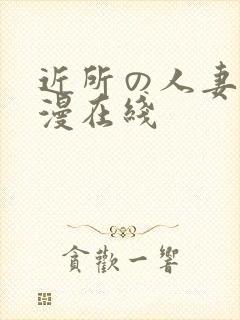 近所の人妻
漫在綫
貪歡一響